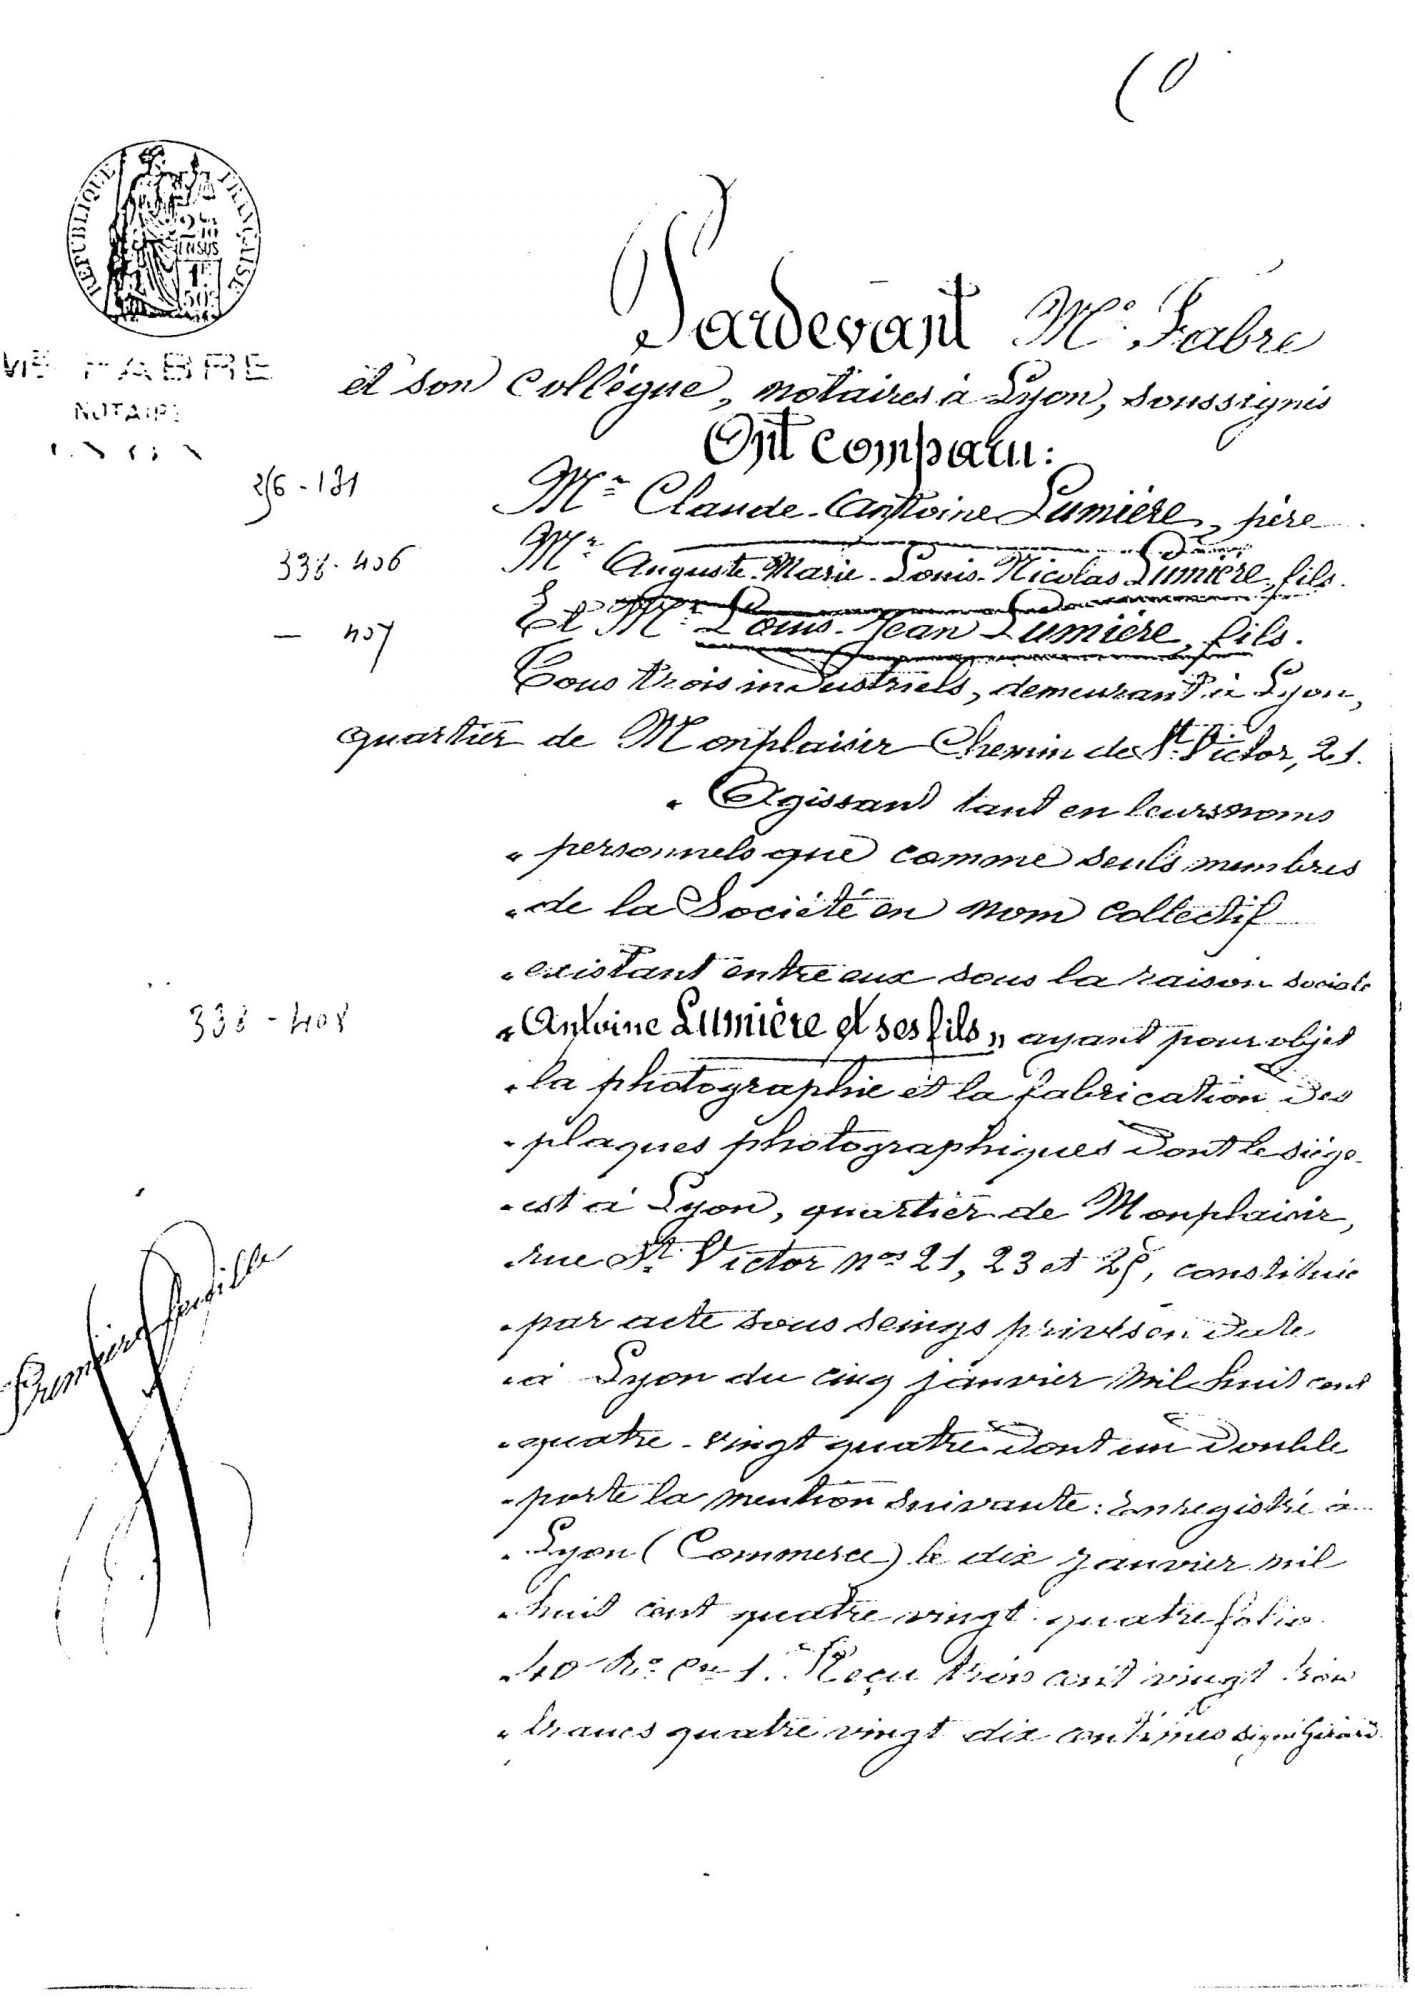 RÉPUBLIQUE FRANÇAISE
2/10
EN SUS
1F
50c
Me FABRE
NOTAIRE
LYON
Pardevant Me. Fabre
et son collègue, notaires à Lyon, soussignés
Ont comparu:
256 - 131
Mr Claude-Antoine Lumière, père
338 - 406
Mr Auguste-Marie-Louis-Nicolas Lumière, fils.
— 407
Et Mr Louis-Jean Lumière, fils.
Tous trois industriels, demeurant à Lyon,
quartier de Monplaisir Chemin de St. Victor, 21.
" Agissant tant en leurs noms
" personnels que comme seuls membres
" de la Société en nom collectif
" existant entre eux sous la raison sociale
338 - 408
" Antoine Lumière et ses fils " ayant pour objet
" la photographie et la fabrication des
" plaques photographiques dont le siège
" est à Lyon, quartier de Monplaisir,
" rue St. Victor nos 21, 23 et 25, constituée
" par acte sous seings privés en date
" à Lyon du cinq janvier mil huit cent
" quatre-vingt quatre dont un double
" porte la mention suivante: Enregistré à
" Lyon (Commerce) le dix janvier mil
" huit cent quatre vingt quatre folio
" 40 Ro Cse 1. Reçu trois cent vingt trois
" francs quatre vingt dix centimes signé Girard
Première feuille